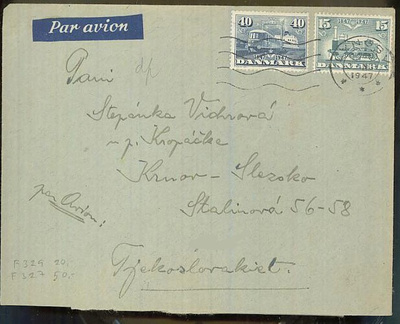 Par avion
40 40
DANMARK
15 15
DANMARK
1947
Paní
Štepánka Vichrová
u p. Kropáčka
Krnov - Slezsko
Stalinová 56-58
par Avion:
Tjekoslovakiet.
F 329 20.-
F 327 50.-